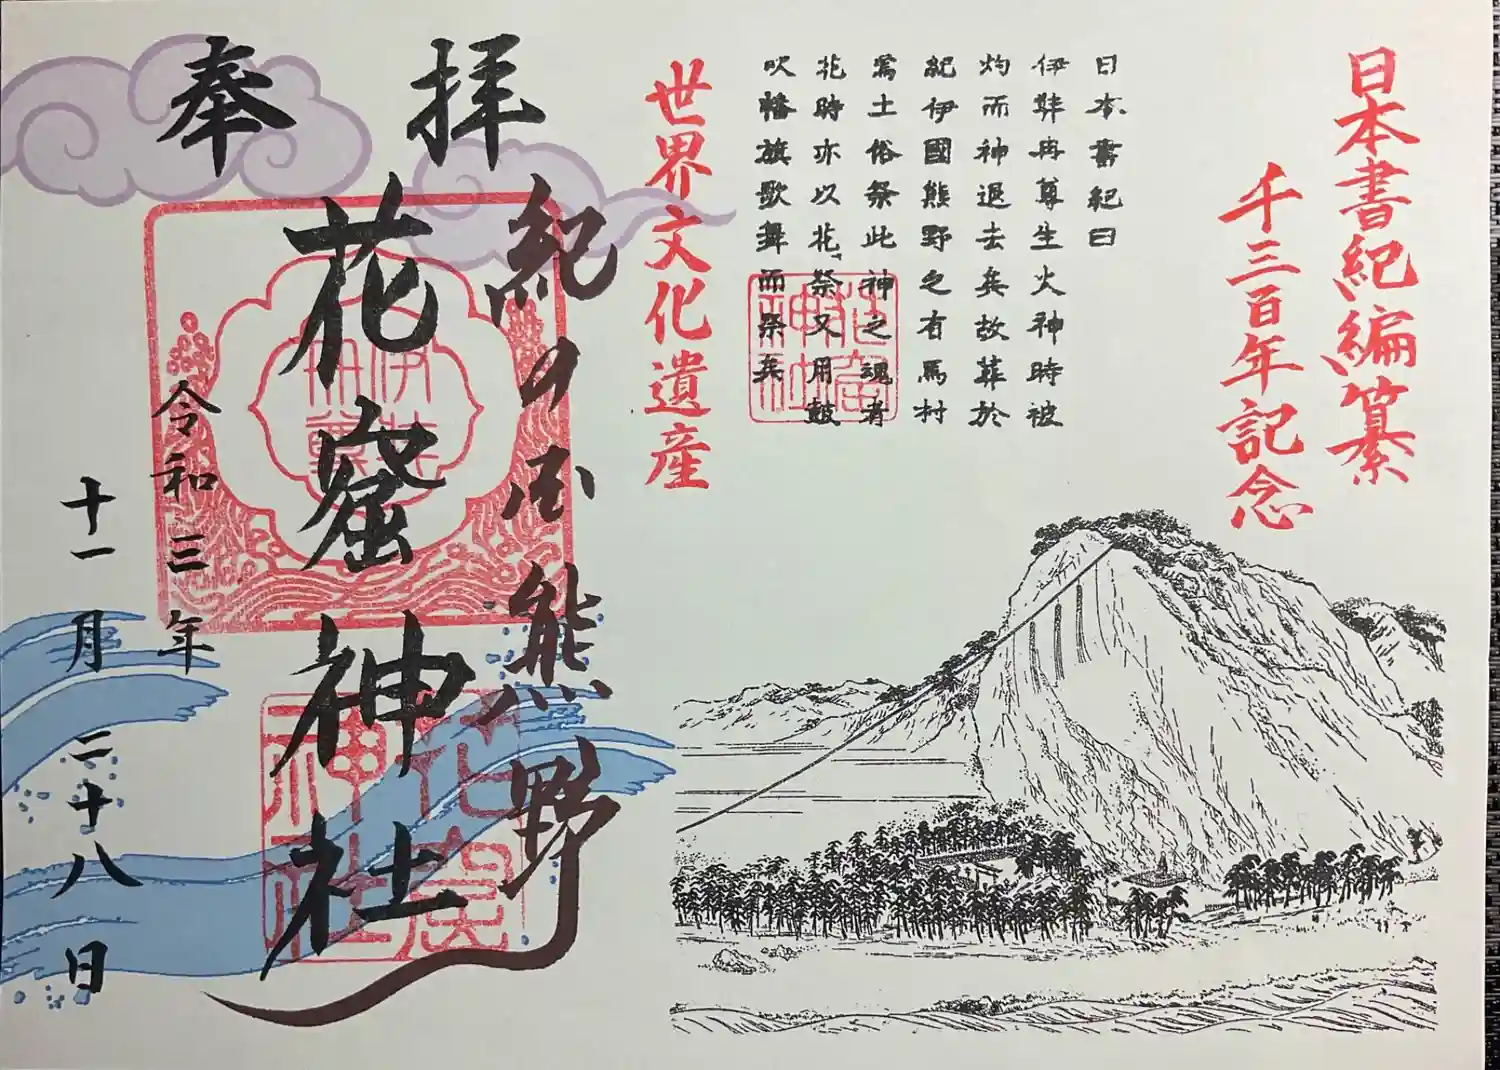 日本書紀編纂
千三百年記念
日本書紀曰
伊弉冉尊生火神時被
灼而神退去矣故葬於
紀伊國熊野之有馬村
焉土俗祭此神之魂者
花時亦以花祭又用鼓
吹幡旗歌舞而祭矣
花窟
神社
世界文化遺産
紀の国熊野
拝
花窟神社
奉
伊弉
冉尊
花窟
神社
令和三年
十一月二十八日